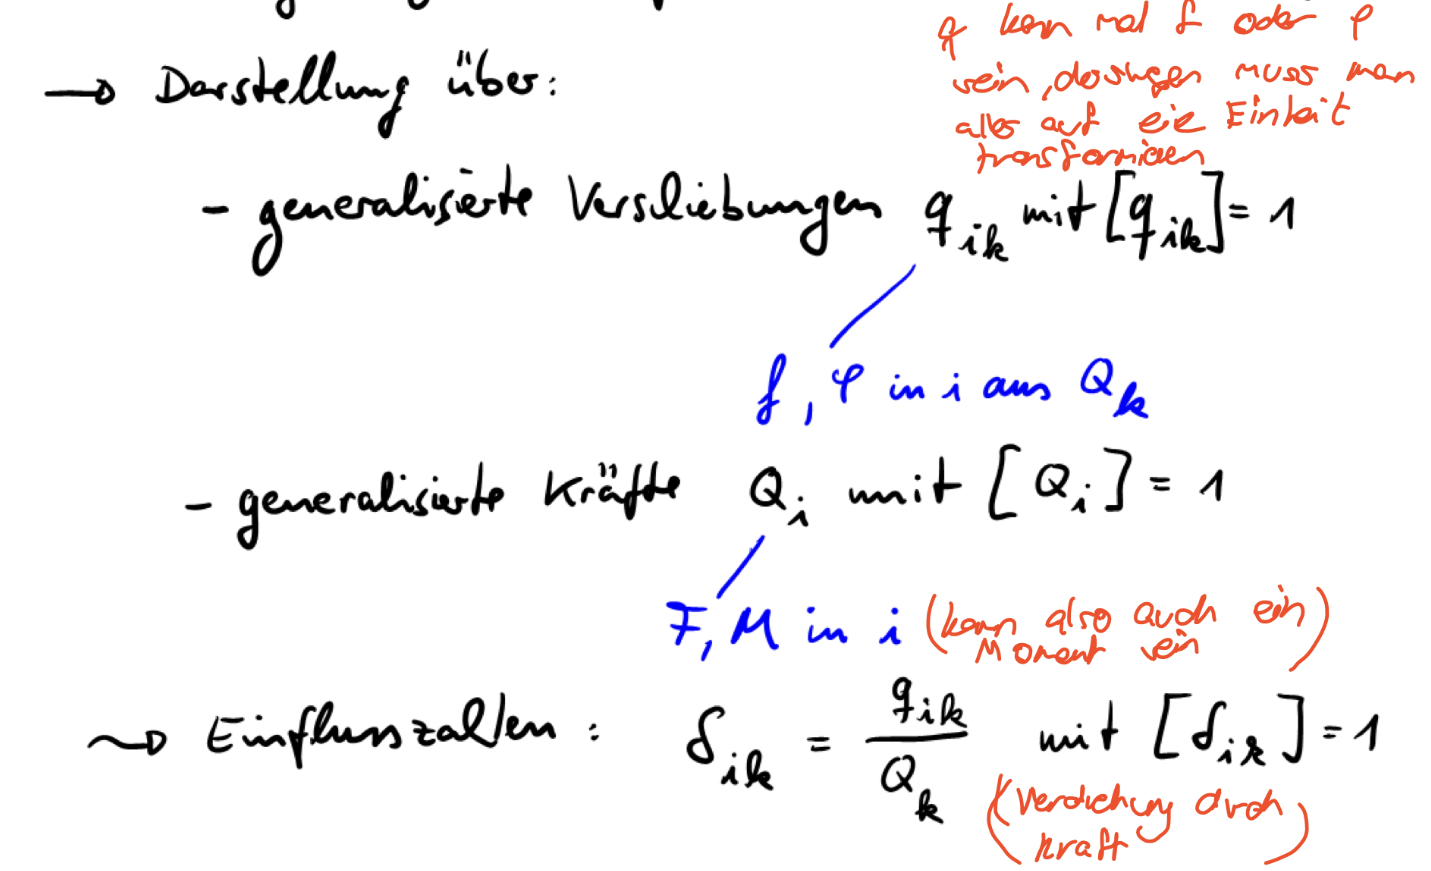 q kann mal f oder φ
sein, deswegen muss man
alles auf eie Einheit
transformieren
→ Darstellung über:
- generalisierte Verschiebungen q_ik mit [q_ik] = 1
f, φ in i aus Q_k
- generalisierte Kräfte Q_i mit [Q_i] = 1
F, M in i (kann also auch ein
Moment sein)
⇝ Einflusszahlen: δ_ik = q_ik / Q_k mit [δ_ik] = 1
(Verdrehung durch
Kraft)